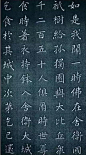 如是我聞一時佛在舍衛國
祇樹給孤獨園與大比丘眾
千二百五十人俱爾時世尊
食時著衣持鉢入舍衛大城
乞食於其城中次第乞已還